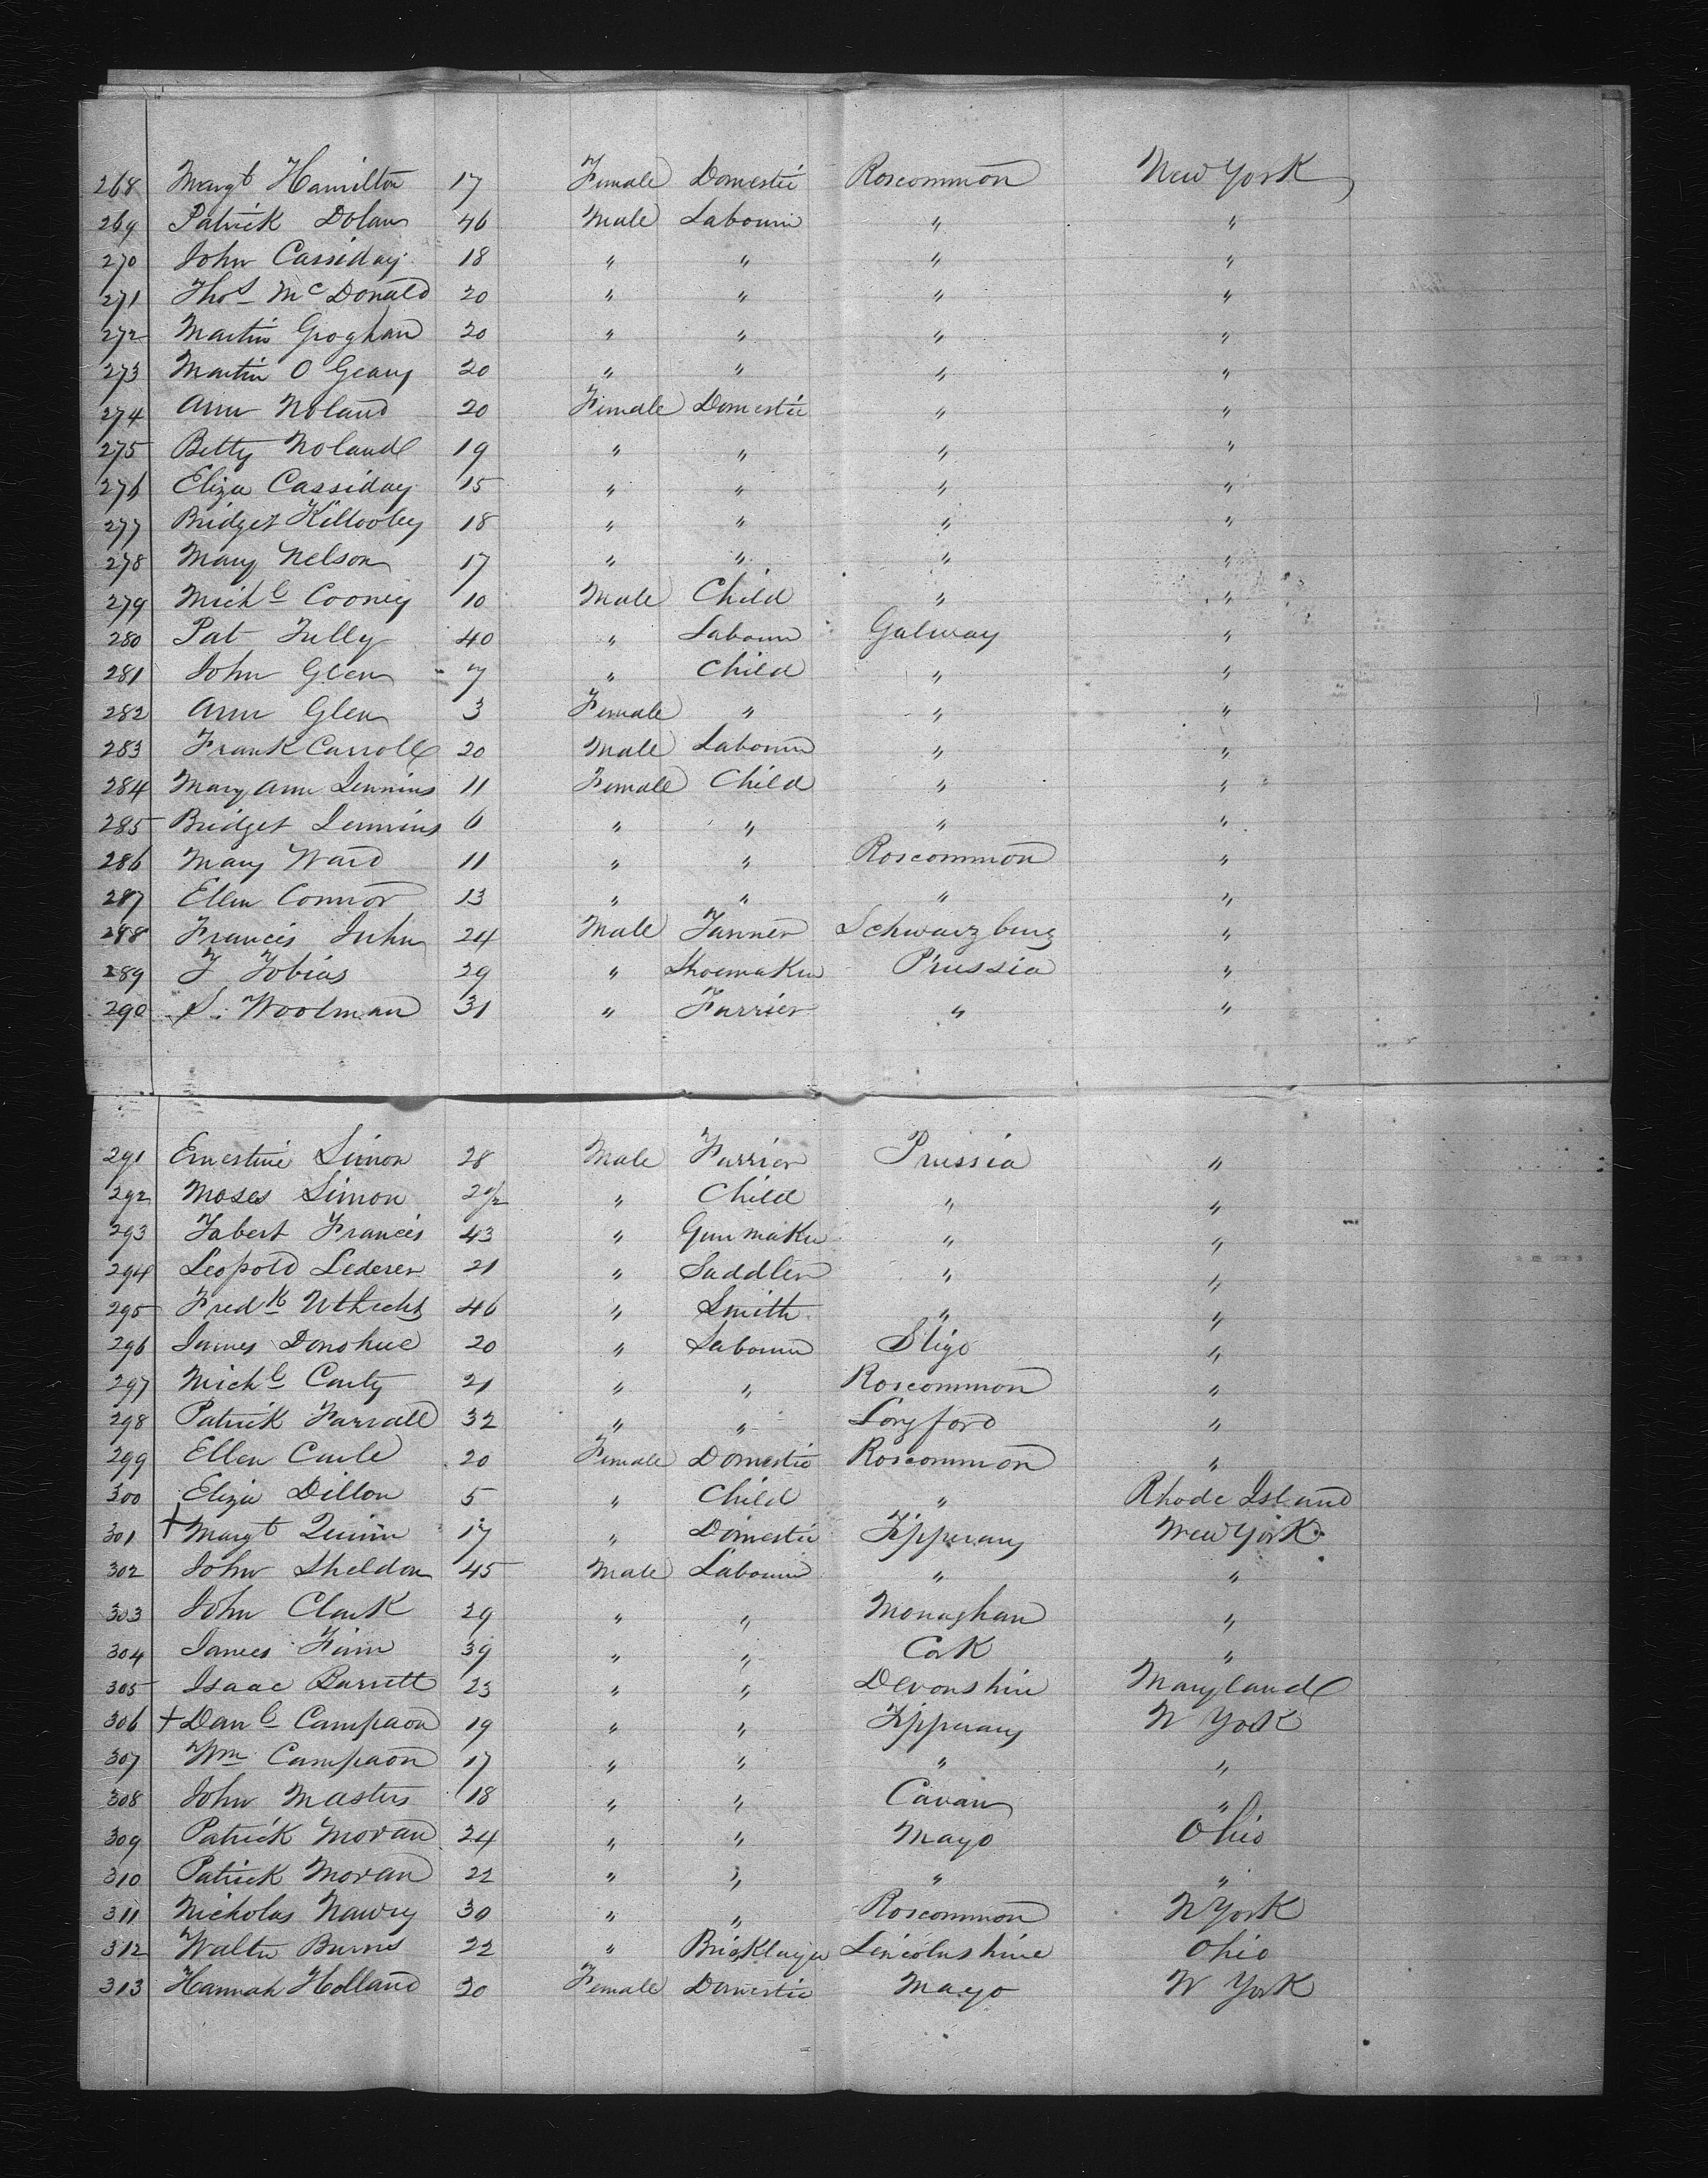 268 Margt Hamilton 17 Female Domestic Roscommon New York
269 Patrick Dolan 46 Male Labourer " "
270 John Cassiday 18 " " " "
271 Thos McDonald 20 " " " "
272 Martin Groghan 20 " " " "
273 Martin O Geary 20 " " " "
274 Ann Noland 20 Female Domestic " "
275 Betty Noland 19 " " " "
276 Eliza Cassiday 15 " " " "
277 Bridget Killooley 18 " " " "
278 Mary Nelson 17 " " " "
279 Michl Cooney 10 Male Child " "
280 Pat Tully 40 " Labourer Galway "
281 John Glen 7 " Child " "
282 Ann Glen 3 Female " " "
283 Frank Carroll 20 Male Labourer " "
284 Mary Ann Jennins 11 Female Child " "
285 Bridget Jennins 6 " " " "
286 Mary Ward 11 " " Roscommon "
287 Ellen Connor 13 " " " "
288 Francis 24 Male Tanner Schwarzburg "
289 J Tobias 29 " Shoemaker Prussia "
290 S. Woolman 31 " Furrier " "
291 Ernestine Simon 28 Male Furrier Prussia "
292 Moses Simon 2 1/2 " Child " "
293 Fabert Francis 43 " Gunmaker " "
294 Leopold Lederer 21 " Saddler " "
295 Fredk 46 " Smith " "
296 James Donohue 20 " Labourer Sligo "
297 Michl Carty 21 " " Roscommon "
298 Patrick Farrall 32 " " Longford "
299 Ellen Carle 20 Female Domestic Roscommon "
300 Eliza Dillon 5 " Child " Rhode Island
301 + Margt Quinn 17 " Domestic Tipperary New York
302 John Sheldon 45 Male Labourer " "
303 John Clark 29 " " Monaghan "
304 James Finn 39 " " Cork "
305 Isaac Barrett 23 " " Devonshire Maryland
306 + Danl Campaon 19 " " Tipperary N York
307 Wm Campaon 17 " " " "
308 John Masters 18 " " Cavan "
309 Patrick Moran 24 " " Mayo Ohio
310 Patrick Moran 22 " " " "
311 Nicholas Nawry 30 " " Roscommon N York
312 Walter Burns 22 " Bricklayer Lincolnshire Ohio
313 Hannah Holland 20 Female Domestic Mayo N York